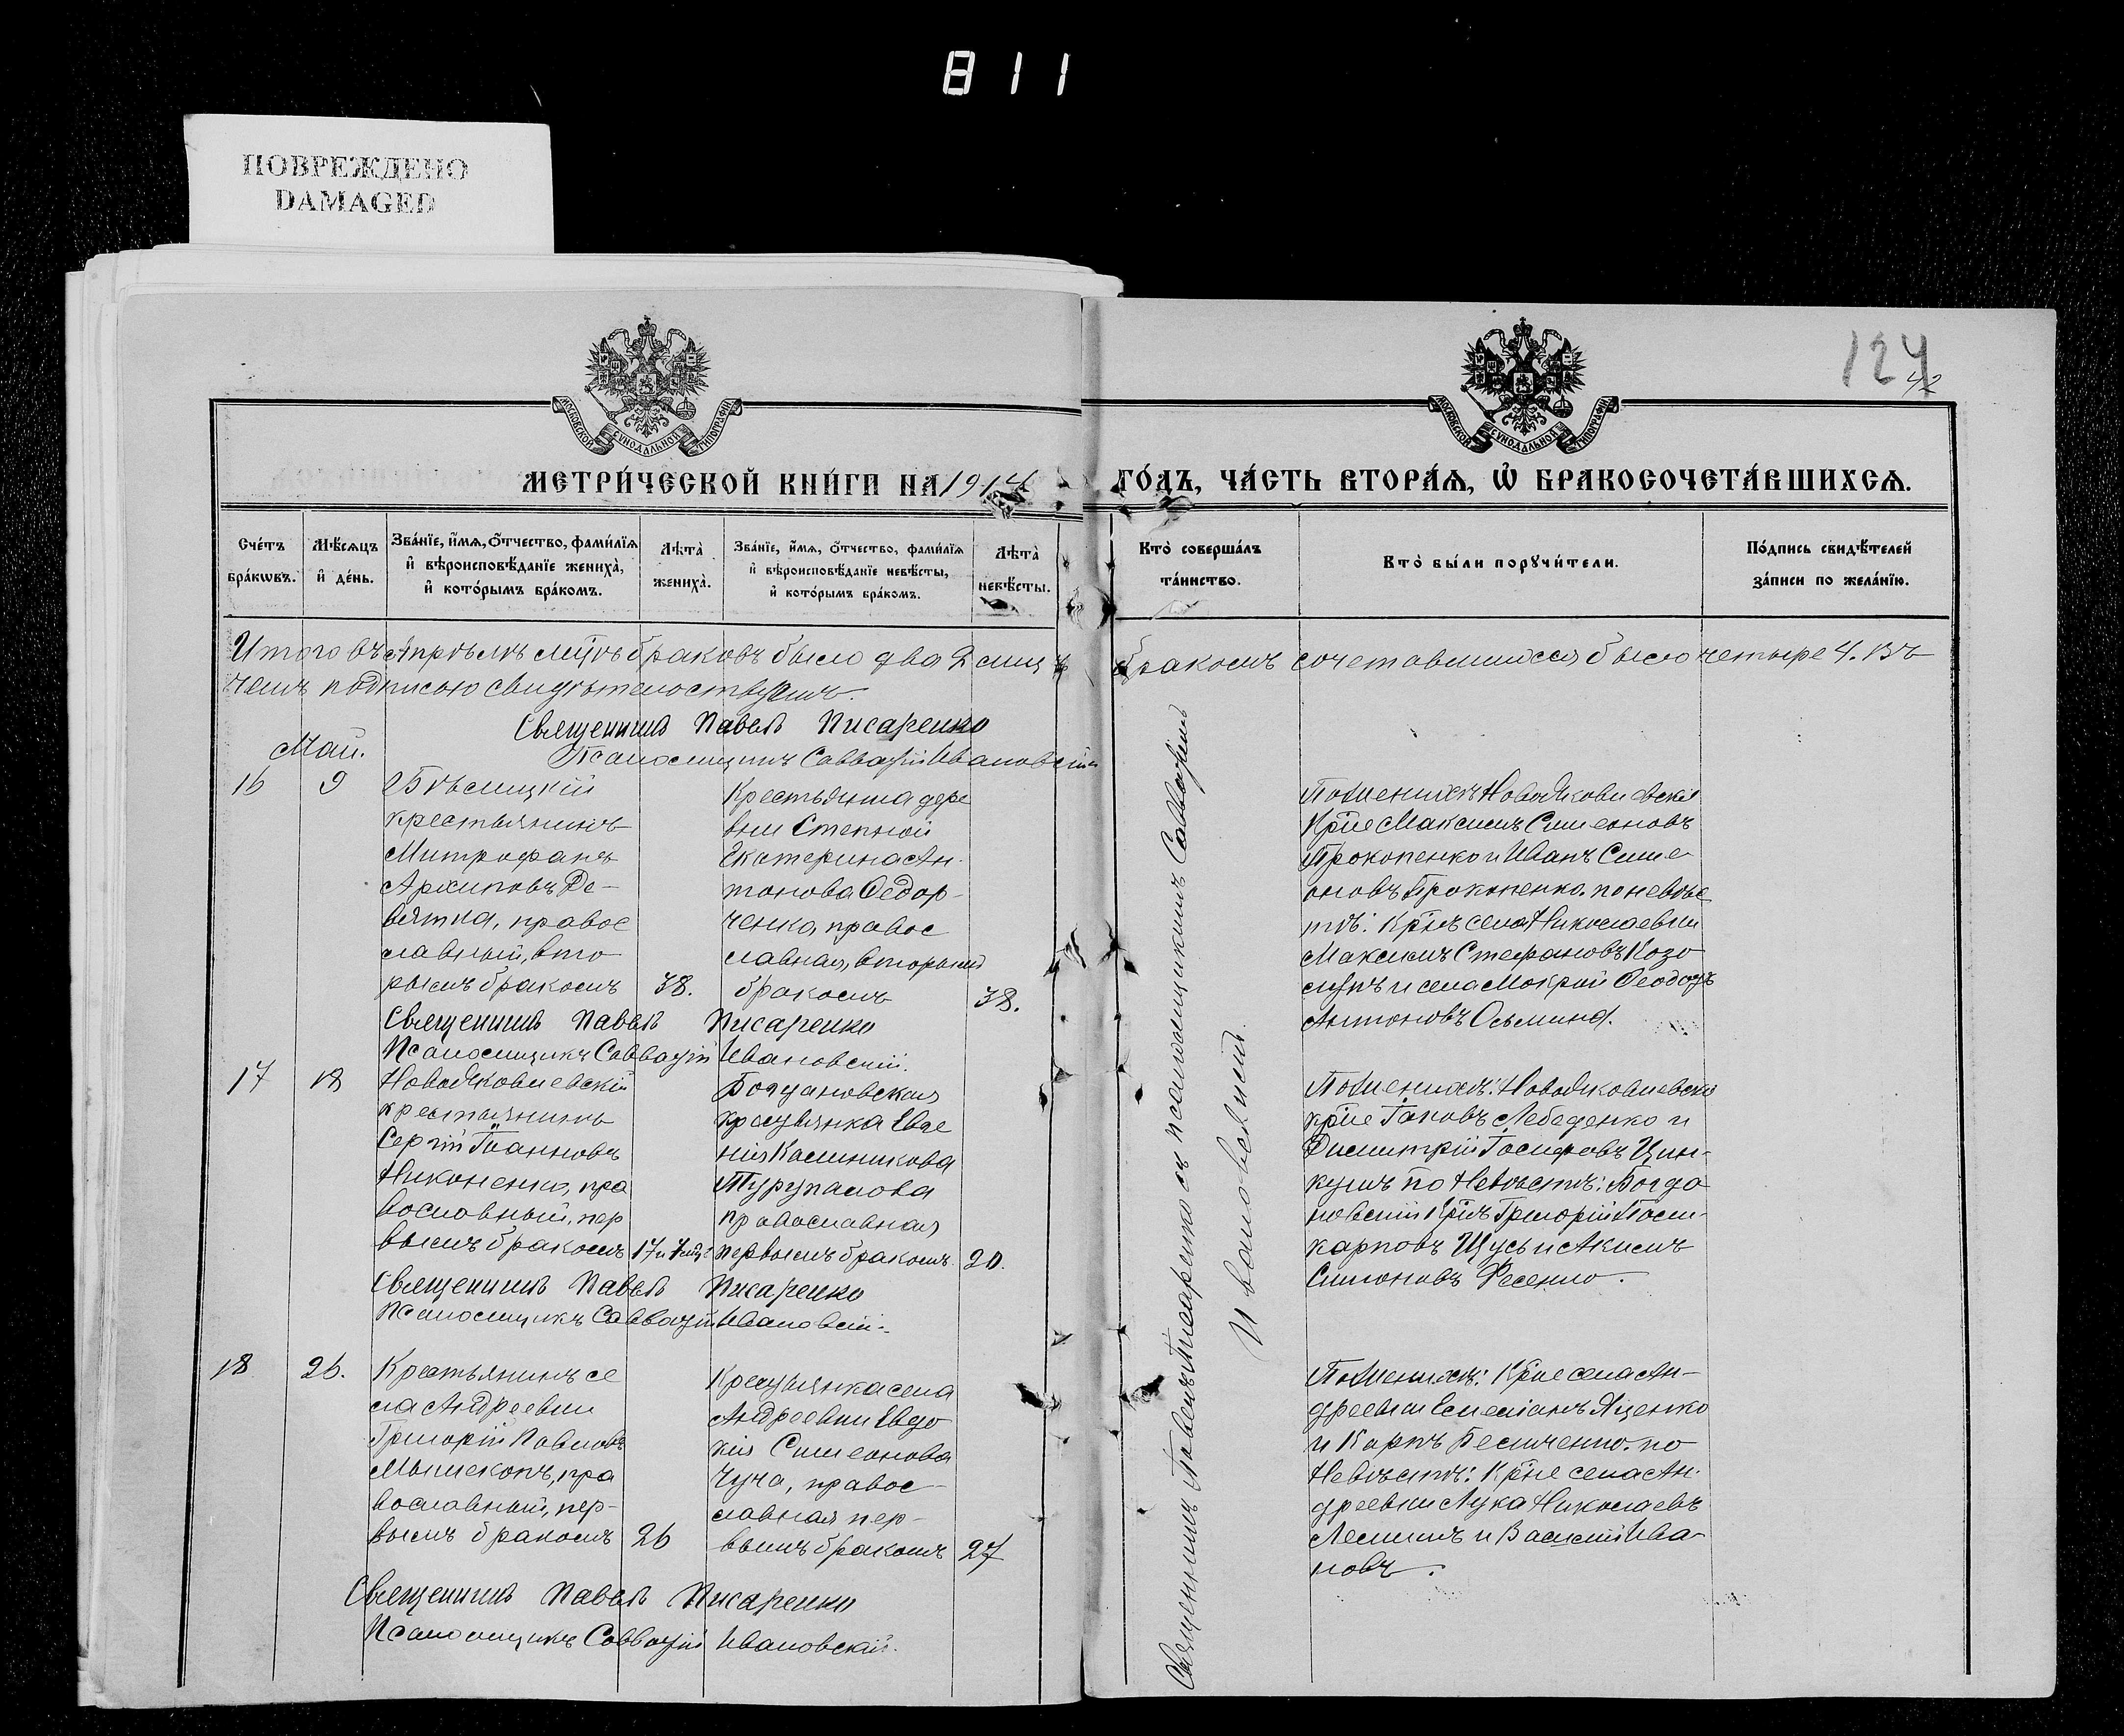 811
ПОВРЕЖДЕНО
DAMAGED
124
42
МОСКОВСКОЙ СУНОДАЛЬНОЙ ТИПОГРАФІИ
МОСКОВСКОЙ СУНОДАЛЬНОЙ ТИПОГРАФІИ
МЕТРИ́ЧЕСКОЙ КНИ́ГИ НА 1914
ГО́ДЪ, ЧА́СТЬ ВТОРА́Я, Ѽ БРАКОСОЧЕТА́ВШИХСЯ.
Сче́тъ бра́кѡвъ.
Мѣ́сяцъ и҆ де́нь.
Зва́нїе, и҆́мя, ѻ҆́тчество, фами́лїя и҆ вѣроисповѣ́данїе жениха̀, и҆ кото́рымъ бра́комъ.
Лѣта̀ жениха̀.
Зва́нїе, и҆́мя, ѻ҆́тчество, фами́лїя и҆ вѣроисповѣ́данїе невѣ́сты, и҆ кото́рымъ бра́комъ.
Лѣта̀ невѣ́сты.
Кто̀ соверша́лъ та́инство.
Кто̀ бы́ли порꙋчи́тели.
По́дпись свидѣ́телей за́писи по жела́нїю.
Итого въ Апрѣлѣ мцѣ браковъ было два 2 лицъ бракомъ сочетавшихся было четыре 4. Въ
чемъ подписью свидѣтельствуемъ.
Священникъ Павелъ Писаренко
Май.
Псаломщикъ Савватій Ивановскій
16
9
крестьянинъ
Митрофанъ
Архиповъ Де-
вятка, правос
лавный, вто
рымъ бракомъ
38.
Крестьянка дере
вни Степной
Екатерина Ан-
тонова Федор-
ченка, правос
лавная, вторымъ
бракомъ
38.
По женихѣ: Новояковлевскіе
кр̃не Максимъ Симеоновъ
Прокопенко и Иванъ Симе
оновъ Прокопенко. по невѣс
тѣ: кр̃нъ села Николаевки
Максимъ Стефановъ Козо
лупъ и села Мокрой Феодоръ
Антоновъ Осьмина.
Священникъ Павелъ Писаренко
Псаломщикъ Савватій Ивановскій.
17
18
Новояковлевскій
крестьянинъ
Сергій Іоанновъ
Никоненко, пра
вославный, пер
вымъ бракомъ
17 и 7 мц.
Богдановская
крестьянка Евге
нія Калиникова
Турупалова
православная
первымъ бракомъ.
20.
По женихѣ: Новояковлевскіе
кр̃не Іаковъ Лебеденко и
Димитрій Іосифовъ Цин-
кушъ по Невѣстѣ: Богда
новскій кр̃нъ Григорій Поли-
карповъ Щусь и Акимъ
Симоновъ Фесенко.
Священникъ Павелъ Писаренко
Псаломщикъ Савватій Ивановскій.
18
26.
Крестьянинъ се
ла Андреевки
Григорій Павловъ
православный, пер-
вымъ бракомъ
26
Крестьянка села
Андреевки Евдо
кія Симеонова
Чуча, правос-
лавная пер-
вымъ бракомъ
27
По женихѣ: кр̃не села Ан-
дреевки Емеліанъ Яценко
и Карпъ по
Невѣстѣ: кр̃не села Ан-
дреевки Лука Николаевъ
и Василій Ива-
новъ.
Священникъ Павелъ Писаренко
Псаломщикъ Савватій Ивановскій.
Священникъ Павелъ Писаренко съ псаломщикомъ Савватіемъ
Ивановскимъ